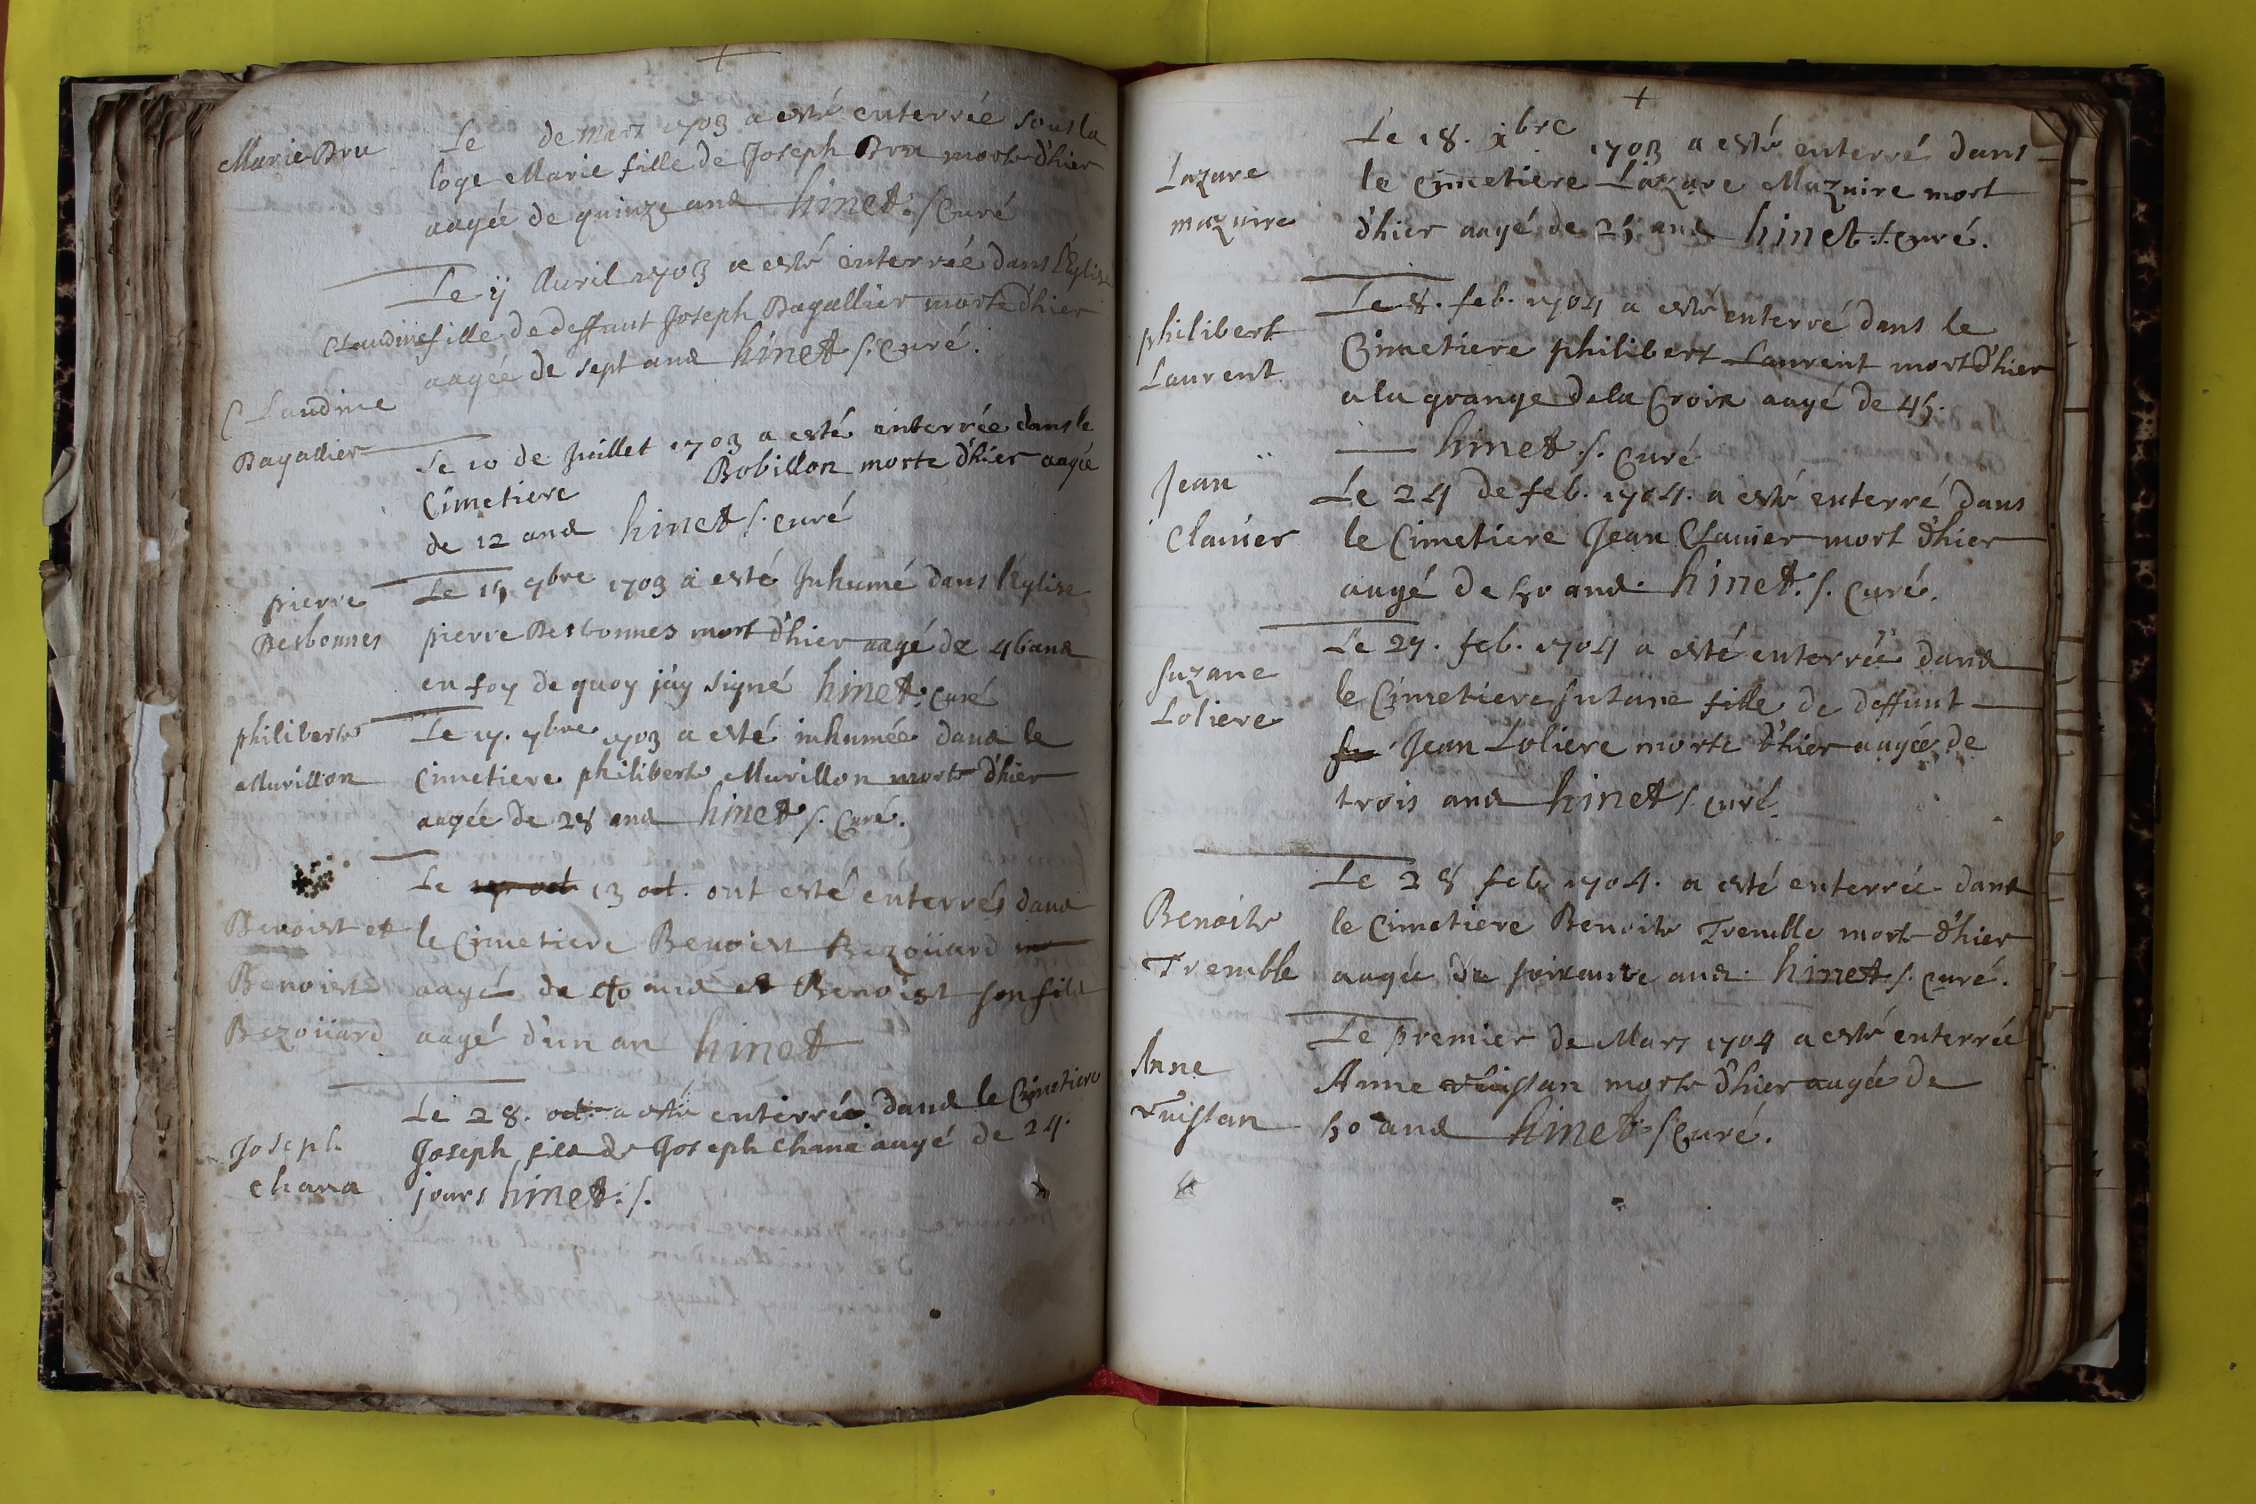 +
Marie Bru
Le de Mars 1703 a esté enterrée sous la
loge Marie fille de Joseph Bru morte d'hier
aagée de quinze ans hinet :/ Curé
Le ij Auril 1703 a esté enterrée dans l'Eglise
Claudine fille de deffunt Joseph Dagallier morte d'hier
aagée de sept ans hinet /. Curé.
Claudine
Dagallier
Le 10 de Juillet 1703 a esté enterrée dans le
Cimetiere Bobillon morte d'hier aagée
de 12 ans hinet /. curé
pierre
Desbonnes
Le 7bre 1703 a esté Inhumé dans l'Eglise
pierre Desbonnes mort d'hier aagé de 46 ans
en foy de quoy j'ay signé hinet. Curé
philiberte
Murillon
Le 17. 7bre 1703 a esté inhumée dans le
Cimetiere philiberte Murillon morte d'hier
aagée de 28 ans hinet /. Curé.
Benoist et
Benoist
Bezoüard
Le 13 oct. ont esté enterrés dans
le Cimetiere Benoist Bezoüard
aagé de 40 ans et Benoist son fils
aagé d'un an hinet
Joseph
chana
Le 28. oct. a esté enterrée dans le Cimetiere
Joseph fils de Joseph chana aagé de 24.
jours hinet :/.
+
Lazare
mazuire
Le 18. xbre 1703 a esté enterré dans
le cimetiere Lazare Mazuire mort
d'hier aagé de 25 ans hinet :/. Curé.
philibert
Laurent
Le 8. feb. 1704 a esté enterré dans le
Cimetiere philibert Laurent mort d'hier
a la grange de la Croix aagé de 45.
hinet /. Curé
Jean
Clauier
Le 24 de feb. 1704. a esté enterré dans
le Cimetiere Jean Clauier mort d'hier
aagé de 50 ans. hinet. /. Curé.
Suzane
Loliere
Le 27. feb. 1704 a esté enterrée dans
le Cimetiere Susane fille de deffunt
fu Jean Loliere morte d'hier aagée de
trois ans hinet /. curé.
Benoite
Tremble
Le 28 feb 1704. a esté enterrée dans
le Cimetiere Benoite Tremble morte d'hier
aagée de soixante ans. hinet /. curé.
Anne
vuissan
Le premier de Mars 1704 a esté enterrée
Anne vuissan morte d'hier aagée de
50 ans hinet /Curé.